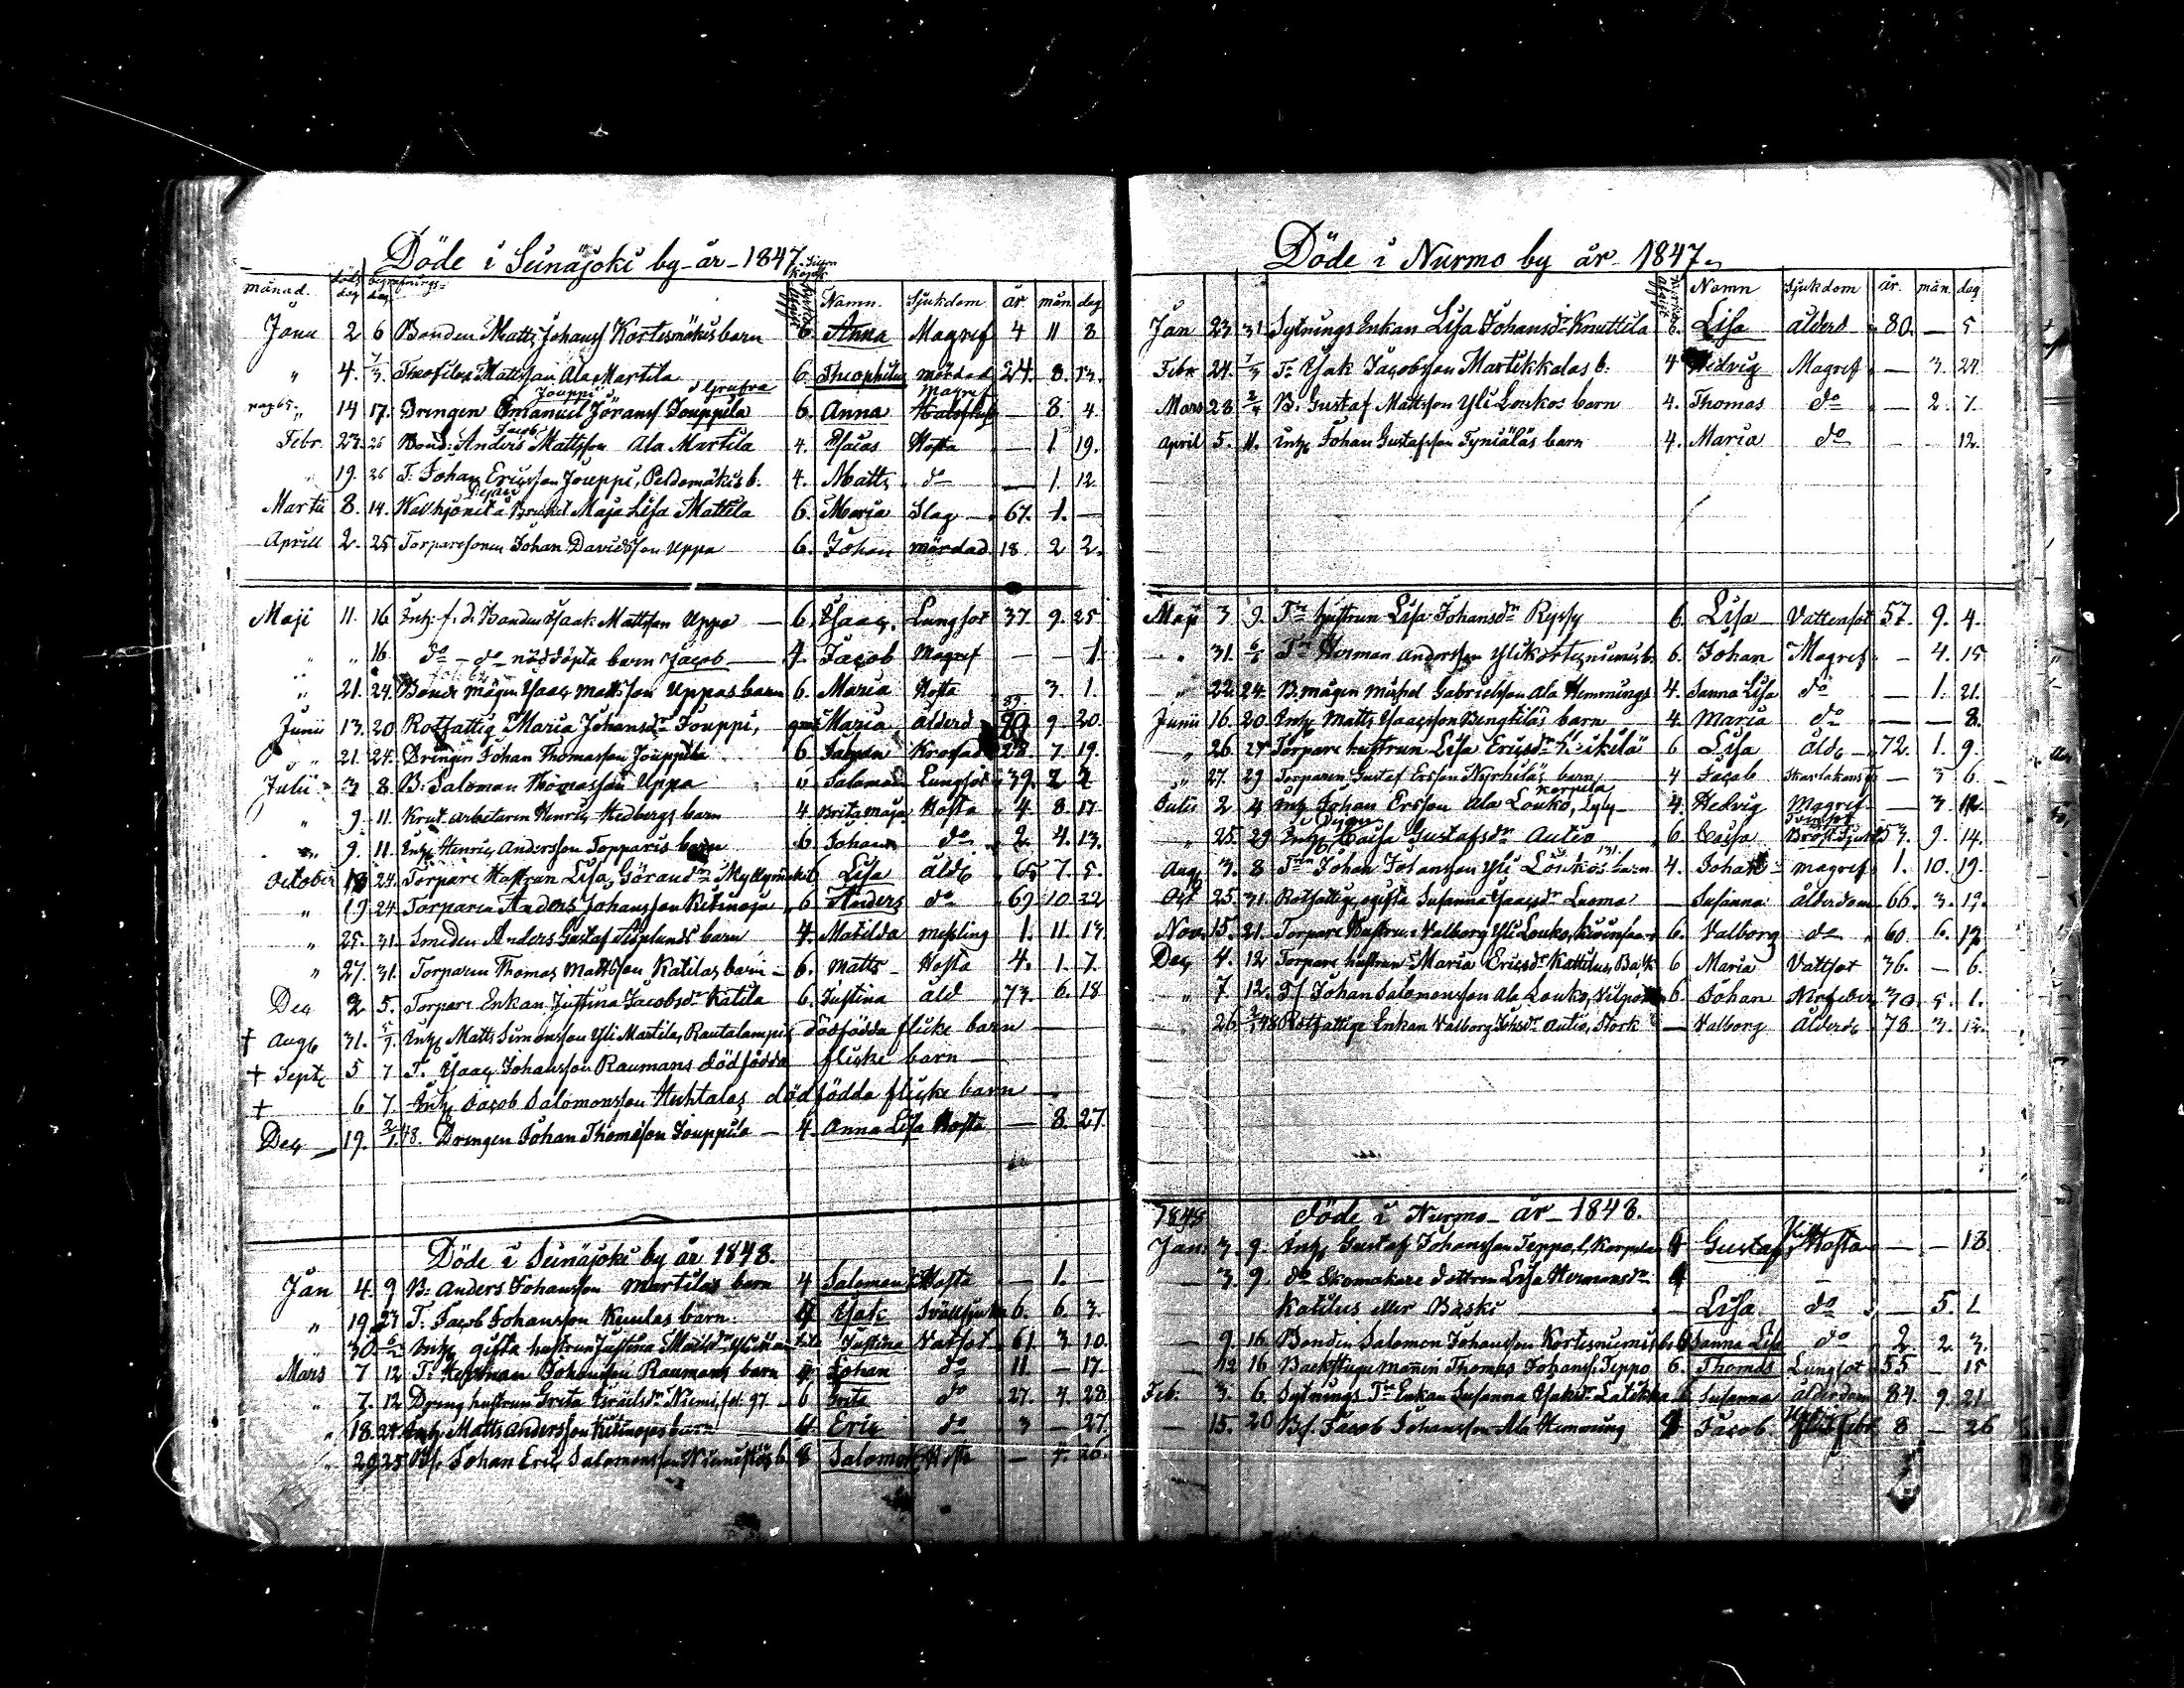 Döde i Seinäjoki by år 1847.
månad. döds dag begrafnings= dag Namn. Sjukdom år mån dag
Janu 2 6 Bonden Matts Johanss Kortesmäkis barn 6. Anna Magref 4 11 8
" 4. 7/3. Theofilus Mattsson Ala Martila 6. Theophilus mördad 24. 8. 13.
Jouppi
pag 65. " 14 17. Drengen Emanuel Jöranss Jouppila 6. Anna — 8. 4.
Jacob
Febr. 23. 26 Bond: Anders Mattsson Ala Martila 4. Esaias Hosta — 1 19.
19. 26 T. Johan Ericsson Jouppi, Peldomäkis b. 4. Matts do — 1. 12
Martii 8. 14. Maja Lisa Mattila 6. Maria Slag 67. 1. —
Aprill 2. 25 Torparesonen Johan Davidsson Uppa 6. Johan mördad 18 2 2.
Maji 11. 16 Inh: f. d. Bonden Isaak Mattsson Uppa — 6. Ysaac. Lungsot 37. 9. 25
" " 16. do — do nöddöpta barn Jacob 4. Jacob Magref — — 1.
" 21. 24. Bonde mågen Ysaac Mattsson Uppas barn 6. Maria Hosta — 3. 1.
Junii 13. 20 Rotfattig Maria Johansdr Jouppi, Maria ålderd 89. 9. 20.
" 21. 24. Drengen Johan Thomasson Jouppila 6. 7. 19.
Julii 3 8 B. Salomon Thomasson Uppa 6 Salomon Lungsot 39. 2 2
" 9. 11. Krut arbetaren Henric Hedbergs barn 4. Brita Maja Hosta 4. 8 17
" 9. 11. Inh Henric Andersson Topparis barn 6. Johan do 2. 4. 13.
October 18 24. Torpare Hustrun Lisa Göransdr Myllymäki 6 Lisa åld 65 7. 5.
" 19 24 Torparen Anders Johansson Kitinoja 6 Anders do 69 10 22
" 25. 31. Smeden Anders Gustaf Asplunds barn 4. Matilda messling 1. 11. 13.
" 27. 31. Torparen Thomas Mattsson Katilas barn — 6. Matts Hosta 4. 1. 7.
Dec 2 5. Torpare Enkan Justina Jacobsdr Katila 6. Justina åld 73. 6. 18
† Aug 31. 5/9. Inh Matts Simonsson Yli Martila, Rautalampis dödfödda flicke barn —
† Sept 5 7 T. Ysaac Johansson Raumans dödfödda flicke barn —
† 6 7 Inh Jacob Salomonsson Huhtalas dödfödda flicke barn —
Dec 19. 2/1.48. Drengen Johan Thomasson Jouppila — 4. Anna Lisa Hosta — 8. 27.
Döde i Seinäjoki by år 1848.
Jan 4. 9 B: Anders Johansson Martilas barn 4 Salomon Hosta — 1.
" 19 23 T. Jacob Johansson barn. 4 Isak 6. 6. 3.
30. 6/2 Inh gifta hustrun Justina Justina Vatsot 61 3 10.
Mars 7 12 T: Herman Johansson Raumans barn 4 Johan do 11. — 17.
7. 12 Dreng hustrun Greta Israelsdr Niemi, fol. 97. 6 Greta do 27. 4. 28
18. 24 Inh: Matts Andersson Kitinojas barn 4. Eric do 3 — 27.
20 25 Bs. Johan Eric Salomonsson b. 8 Salomon Hosta — 4. 26.
Döde i Nurmo by år 1847.
Namn Sjukdom år. mån. dag
Jan 23 31. Sytnings Enkan Lisa Johansdr Knuttila 6. Lisa ålderd 80. — 5
Febr 24. 7/3 T. Isak Jacobsson Martikkalas b. 4 Hedvig Magref — 3. 24.
Mars 28 2/4 B. Gustaf Mattsson Yli Loukos barn 4. Thomas do — 2. 7.
April 5. 11. Inh Johan Gustafsson Tyniäläs barn 4. Maria do — — 12.
Maji 3 9. Tre hustrun Lisa Johansdr Ryssy 6. Lisa Vattensot 57. 9. 4.
" 31. 6/6 Tn Herman Andersson Ylikortesniemis b. 6. Johan Magref — 4. 15
" 22. 24. B. mågen Michel Gabrielsson Ala Hemmings 4. Sanna Lisa do — 1. 21.
Junii 16. 20 Inh Matts Ysaacsson Bengtiläs barn 4. Maria do — — 8.
" 26. 27 Torpare hustrun Lisa Ericsdr 6 Lisa åld 72. 1. 9.
" 27. 29 Torparen Gustaf Ersson Nyrhiläs barn 4 Jacob — 3 6.
Korpela
Julii 2 4 Inh Johan Ersson Ala Louko, 4. Hedvig Magref — 3 12.
" 25. 29 Inh Caisa Gustafsdr Autio 6 Caisa Bröstsjuka 57. 9. 14.
131.
Aug 3. 8 Tn Johan Johansson Yli Loukos barn 4. Johan magref 1. 10. 19.
Oct 25. 31. Rotfattige ogifta Susanna Ysaacsdr Luoma — Susanna ålderdom 66. 3. 19.
Nov. 15. 21. Torpare Hustrun Valborg Yli Louko, 6. Valborg do 60. 6. 19
Dec 4. 12 Torpare hustrun Maria Ericsdr Kattilus, 6 Maria Vattsot 36. — 6.
" 7 12. Johan Salomonsson Ala Louko, 6. Johan 30. 5. 1.
26. 2/1 48 Rotfattige Enkan Valborg Johsdr Autio, Stork — Valborg ålderd 78. 3. 12.
1848 Döde i Nurmo år 1848.
Jan 3. 9. Inh Gustaf Johansson Teppo, l. Korpela 4 Gustaf Kikhosta — — 18.
3. 9. do Skomakare dottren Lisa Hermansdr 4
Katilus eller Bäski — Lisa do — 5. 1.
9. 16 Bonden Salomon Johansson Kortesniemis b. 6 Sanna Lisa do 2 2. 3.
12 16 Backstugu mannen Thomas Johanss. Teppo 6. Thomas Lungsot 55 — 15
Feb. 3. 6. Sytnings Trs Enkan Susanna Isaksdr Latikka 6 Susanna ålderdom 84. 9. 21.
15. 20 Bs. Jacob Johansson Ala Hemming 4 Jacob 8 — 26